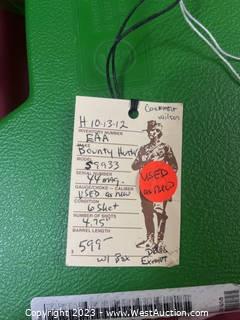 H 10-13-12
INVENTORY NUMBER
EAA
MAKE
Bounty Hunter
MODEL
59933
SERIAL NUMBER
44 mag.
GAUGE/CHOKE - CALIBER
USED as new
CONDITION
6 Shot
NUMBER OF SHOTS
4.75"
BARREL LENGTH
599-
w/ Box
Wilson
USED
as new
Copyright © 2023 -